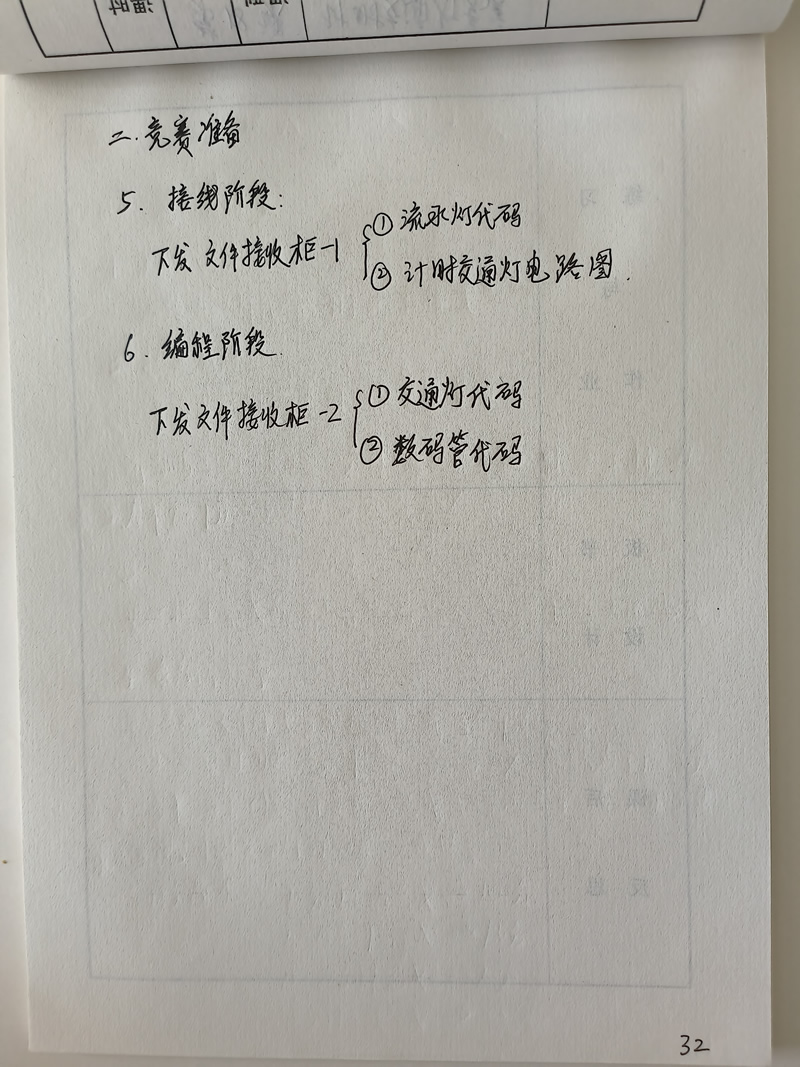 二.竞赛准备
5. 接线阶段:
下发文件接收柜-1 { ①流水灯代码
②计时交通灯电路图.
6. 编程阶段.
下发文件接收柜-2 { ①交通灯代码
②数码管代码
32